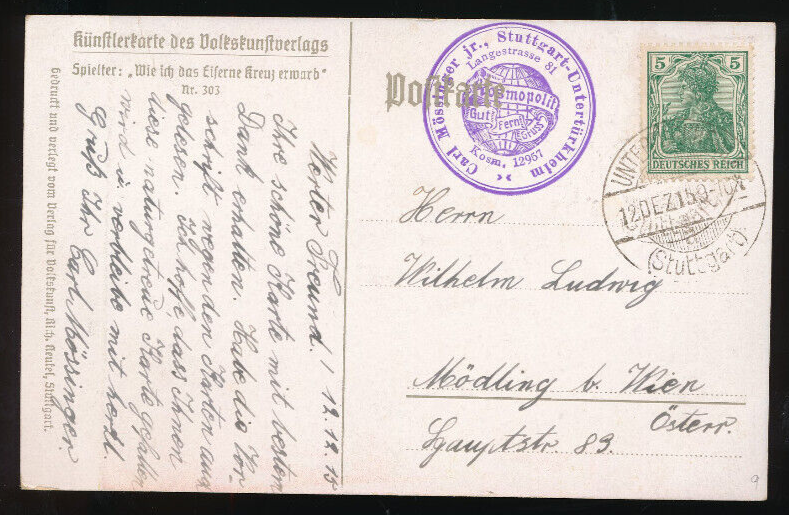 Künstlerkarte des Volkskunstverlags
Spielter: „Wie ich das Eiserne Kreuz erwarb"
Nr. 303
Gedruckt und verlegt vom Verlag für Volkskunst, Rich. Keutel, Stuttgart.
Werter Freund! 12.12.15
Ihre schöne Karte mit bestem
Dank erhalten. Habe die Vor-
schrift wegen den Karten auch
gelesen. Ich hoffe, dass Ihnen
diese naturgetreue Karte gefallen
wird u. verbleibe mit herzl.
Gruß Ihr Carl Mössinger
Postkarte
Carl Mössinger jr., Stuttgart-Untertürkheim
Langestrasse 81
Kosmopolit
Gutt
Fern
Gruss
Kosm. 12957
5 5
DEUTSCHES REICH
12DEZ15
(Stuttgart)
Herrn
Wilhelm Ludwig
Mödling b. Wien
Österr.
Hauptstr. 83.
9